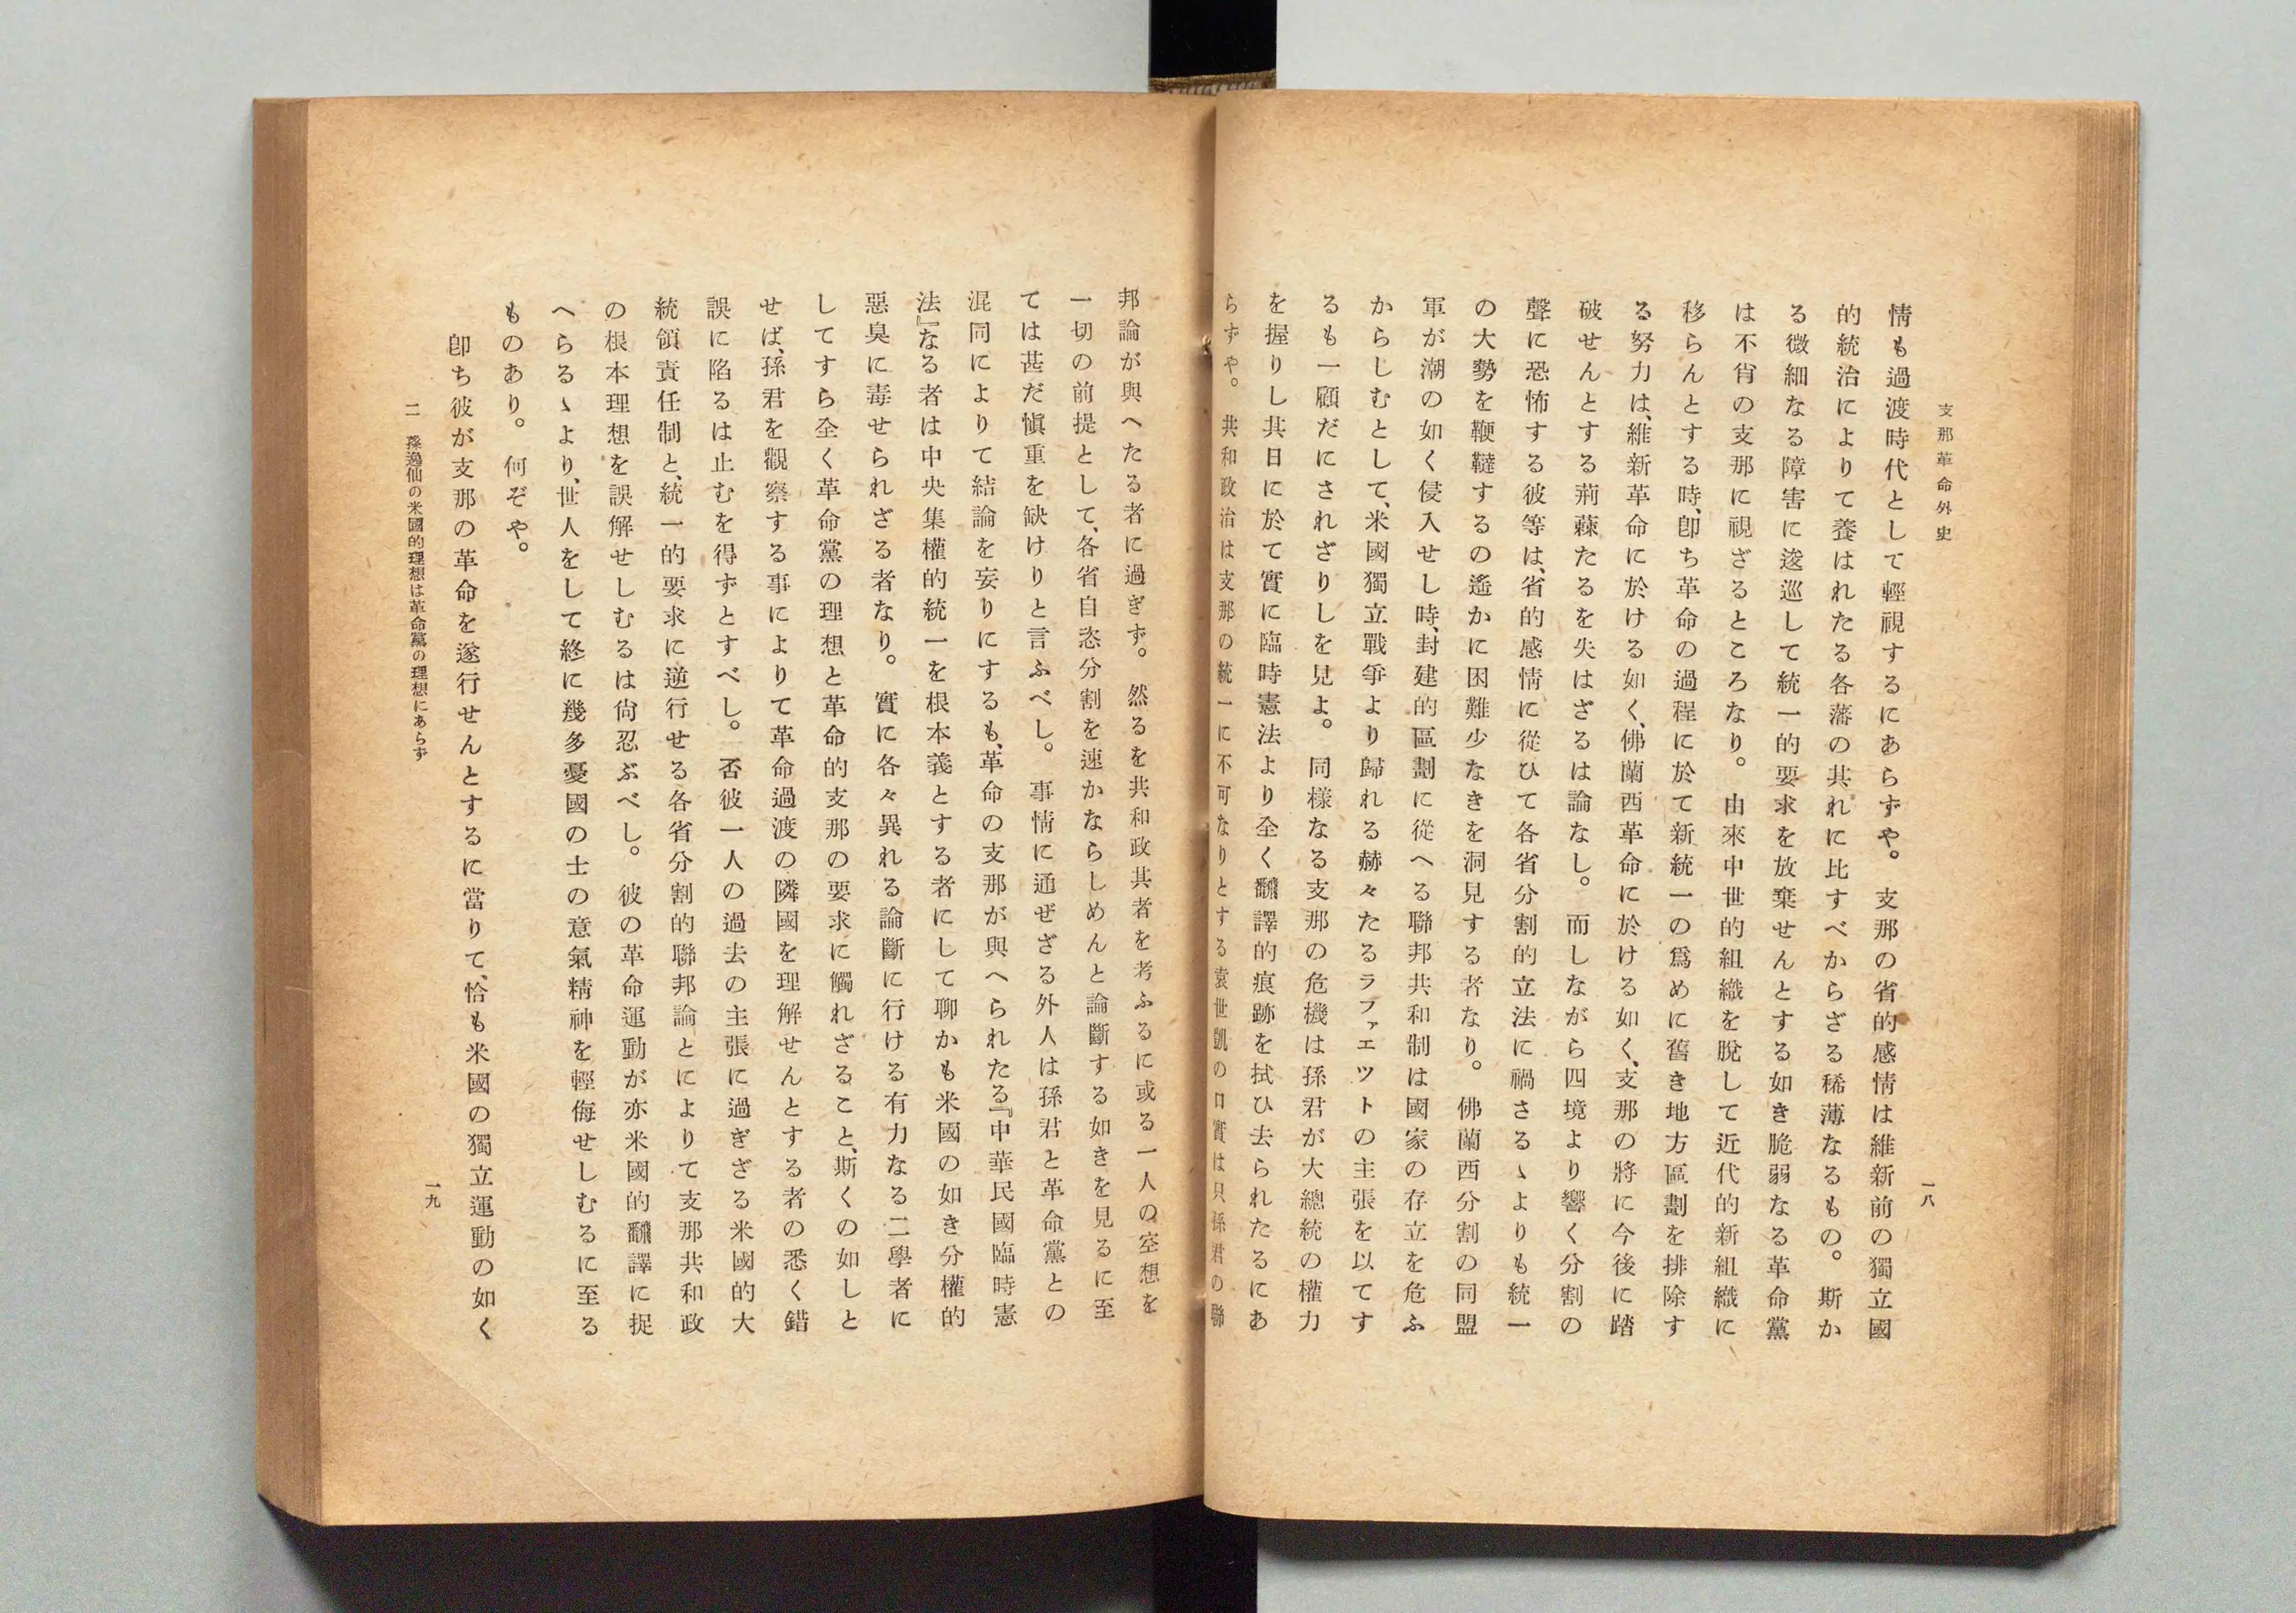 支那革命外史
一八
情も過渡時代として輕視するにあらずや。支那の省的感情は維新前の獨立國
的統治によりて養はれたる各藩の其れに比すべからざる稀薄なるもの。斯か
る微細なる障害に逡巡して統一的要求を放棄せんとする如き脆弱なる革命黨
は不肯の支那に視ざるところなり。由來中世的組織を脫して近代的新組織に
移らんとする時、卽ち革命の過程に於て新統一の爲めに舊き地方區劃を排除す
る努力は、維新革命に於ける如く、佛蘭西革命に於ける如く、支那の將に今後に踏
破せんとする荊蕀たるを失はざるは論なし。而しながら四境より響く分割の
聲に恐怖する彼等は、省的感情に從ひて各省分割的立法に禍さるゝよりも統一
の大勢を鞭韃するの遙かに困難少なきを洞見する者なり。佛蘭西分割の同盟
軍が潮の如く侵入せし時、封建的區劃に從へる聯邦共和制は國家の存立を危ふ
からしむとして、米國獨立戰爭より歸れる赫々たるラファエツトの主張を以てす
るも一顧だにされざりしを見よ。同樣なる支那の危機は孫君が大總統の權力
を握りし其日に於て實に臨時憲法より全く飜譯的痕跡を拭ひ去られたるにあ
らずや。共和政治は支那の統一に不可なりとする袁世凱の口實は只孫君の聯
邦論が與へたる者に過ぎず。然るを共和政其者を考ふるに或る一人の空想を
一切の前提として、各省自恣分割を速かならしめんと論斷する如きを見るに至
ては甚だ愼重を缺けりと言ふべし。事情に通ぜざる外人は孫君と革命黨との
混同によりて結論を妄りにするも、革命の支那が與へられたる『中華民國臨時憲
法』なる者は中央集權的統一を根本義とする者にして聊かも米國の如き分權的
惡臭に毒せられざる者なり。實に各々異れる論斷に行ける有力なる二學者に
してすら全く革命黨の理想と革命的支那の要求に觸れざること、斯くの如しと
せば、孫君を觀察する事によりて革命過渡の隣國を理解せんとする者の悉く錯
誤に陷るは止むを得ずとすべし。否彼一人の過去の主張に過ぎざる米國的大
統領責任制と、統一的要求に逆行せる各省分割的聯邦論とによりて支那共和政
の根本理想を誤解せしむるは尙忍ぶべし。彼の革命運動が亦米國的飜譯に捉
へらるゝより、世人をして終に幾多憂國の士の意氣精神を輕侮せしむるに至る
ものあり。何ぞや。
卽ち彼が支那の革命を遂行せんとするに當りて、恰も米國の獨立運動の如く
二　孫逸仙の米國的理想は革命黨の理想にあらず
一九